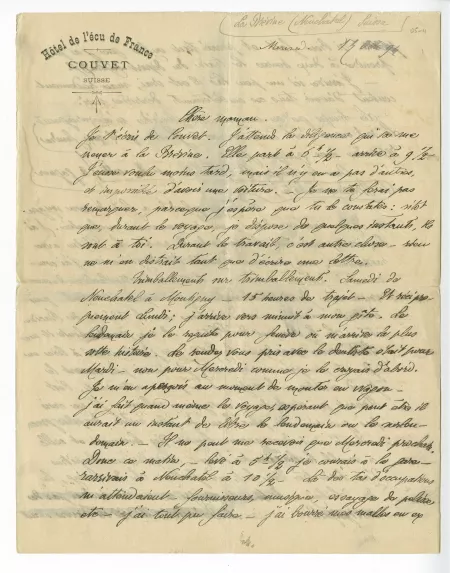 (La Brévine (Neuchâtel) Suisse)
Hôtel de l'écu de France
COUVET
SUISSE
Mercredi 17 Oct 94
Chère maman.
Je t'écris de Couvet. J'attends la diligence qui va me
mener à la Brévine. Elle part à 6h ½ arrive à 9 ½
J'eusse voulu moins tard, mais il n'y en a pas d'autres,
et impossible d'avoir une voiture. Je ne te ferai pas
remarquer, parce que j'espère que tu le constates: sitôt
que, durant le voyage, je dispose de quelques instants, ils
sont à toi. Durant le travail, c'est autre chose - rien
ne m'en distrait tant que d'écrire une lettre.
Trimballements sur trimballements. Samedi de
Neuchatel à Montigny - 15 heures de trajet - Et réci pro
quement lundi; j'arrive vers minuit à mon gîte. Le
lendemain je le repars pour
votre histoire. Le rendez vous pris avec le dentiste était pour
Mardi - non pour Mercredi comme je le croyais d'abord.
Je m'en aperçois au moment de monter en wagon -
j'ai fait quand même le voyage espérant que peut être il
aurait un instant de libre le lendemain ou le surlen-
demain. - Il ne peut me recevoir que Mercredi prochain.
Donc ce matin - levé à 5h ½ je courais à la gare
rarrivais à Neuchatel à 10 ½ - Là des tas d'occupations
m'attendaient fournisseurs, musique,
etc - j'ai tout pu faire - j'ai bourré mes malles en ex